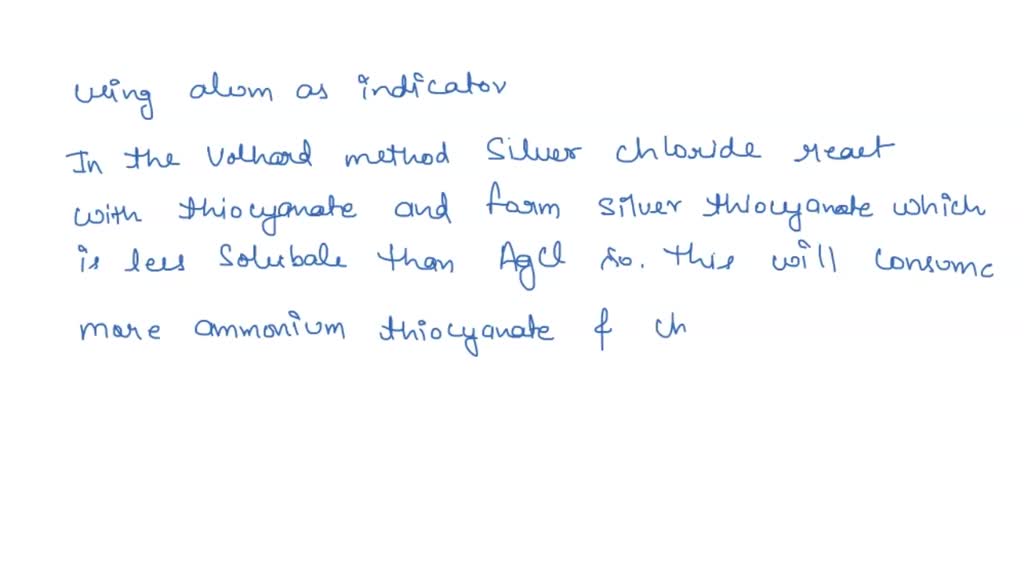 using alum as indicator
In the Volhard method silver chloride react
with thiocyanate and form silver thiocyanate which
is less solubale than AgCl so. this will consume
more ammonium thiocyanate & ch